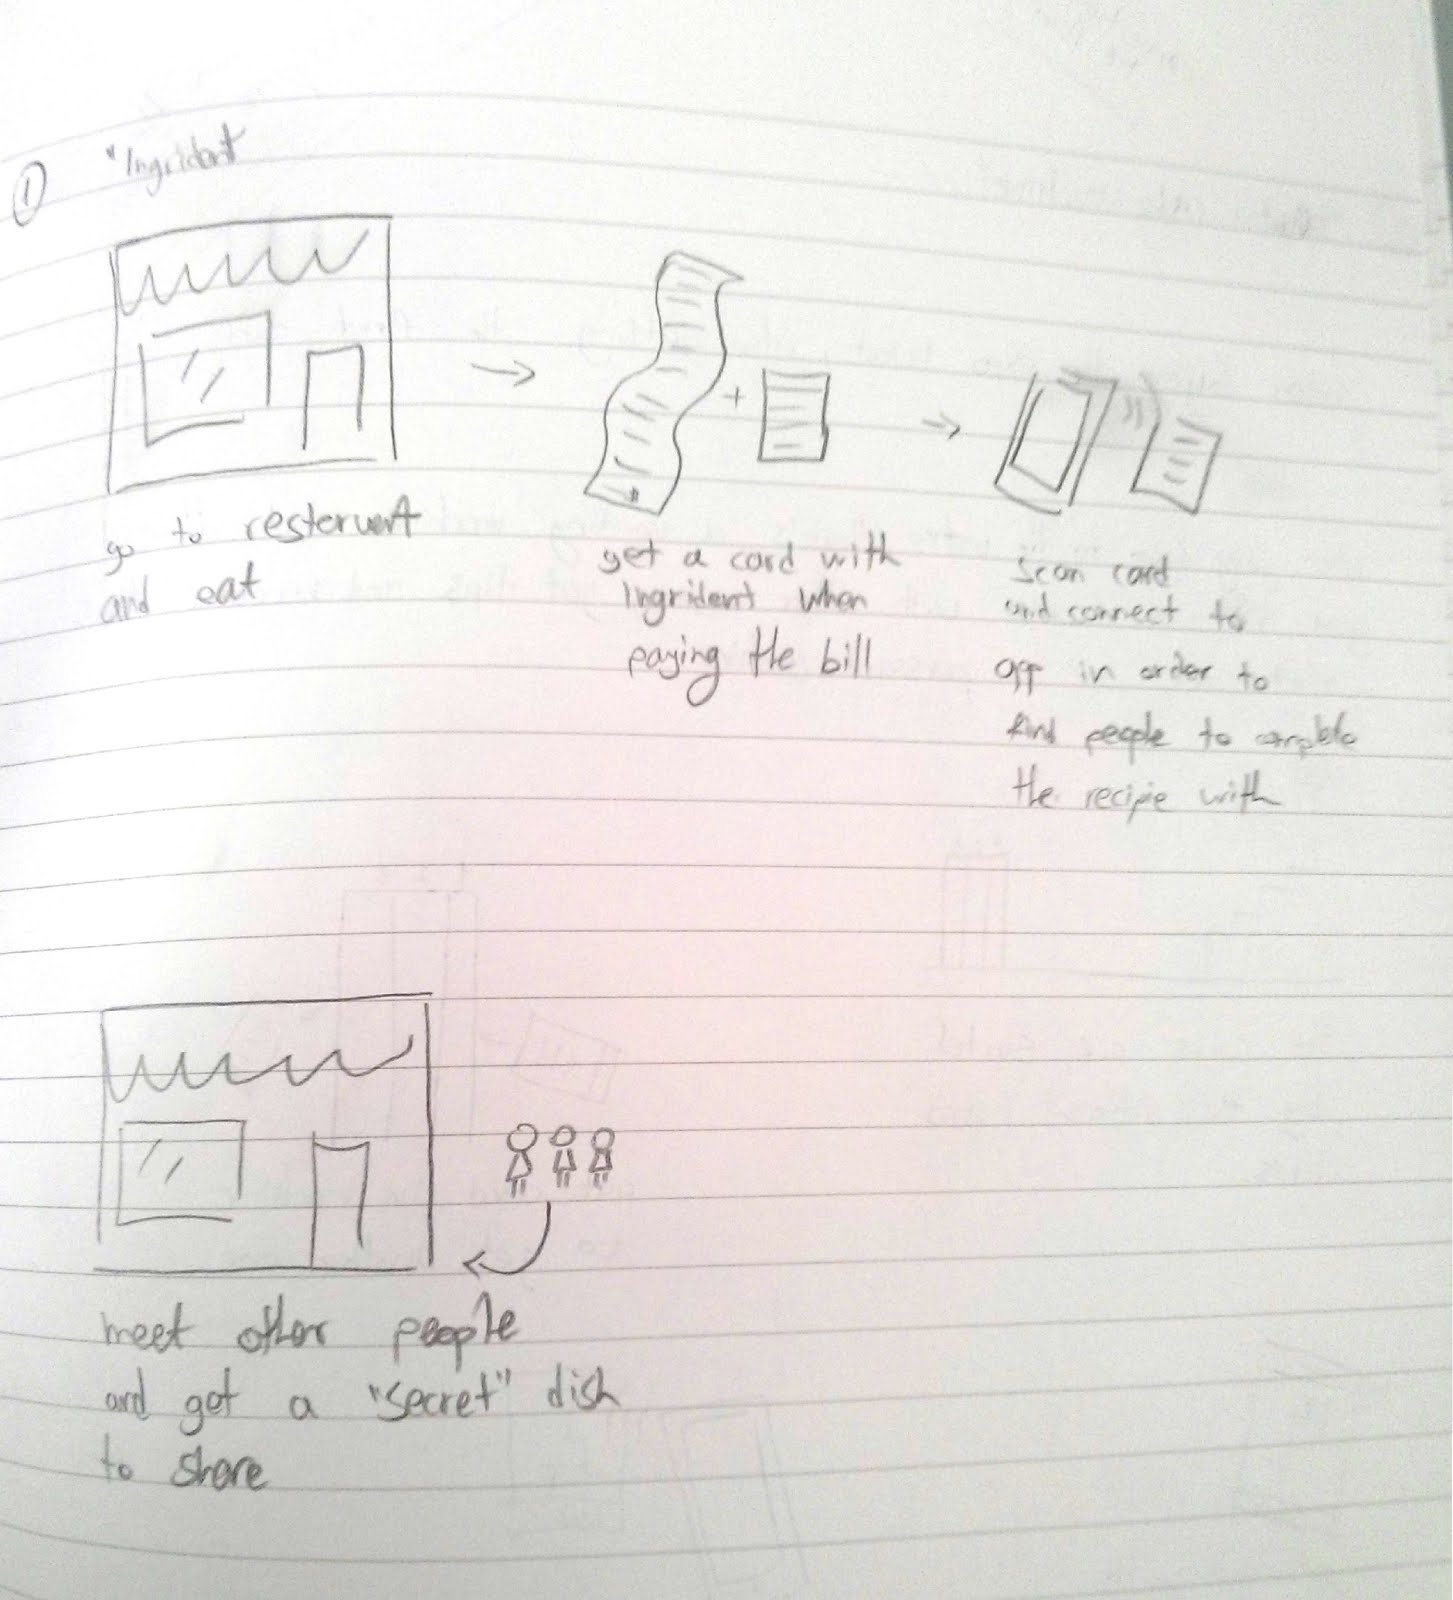 ① "Ingrident
go to resteruent
and eat
get a card with
Ingrident when
paying the bill
scan card
and connect to
app in order to
find people to complete
the recipie with
meet other people
and get a "secret" dish
to share